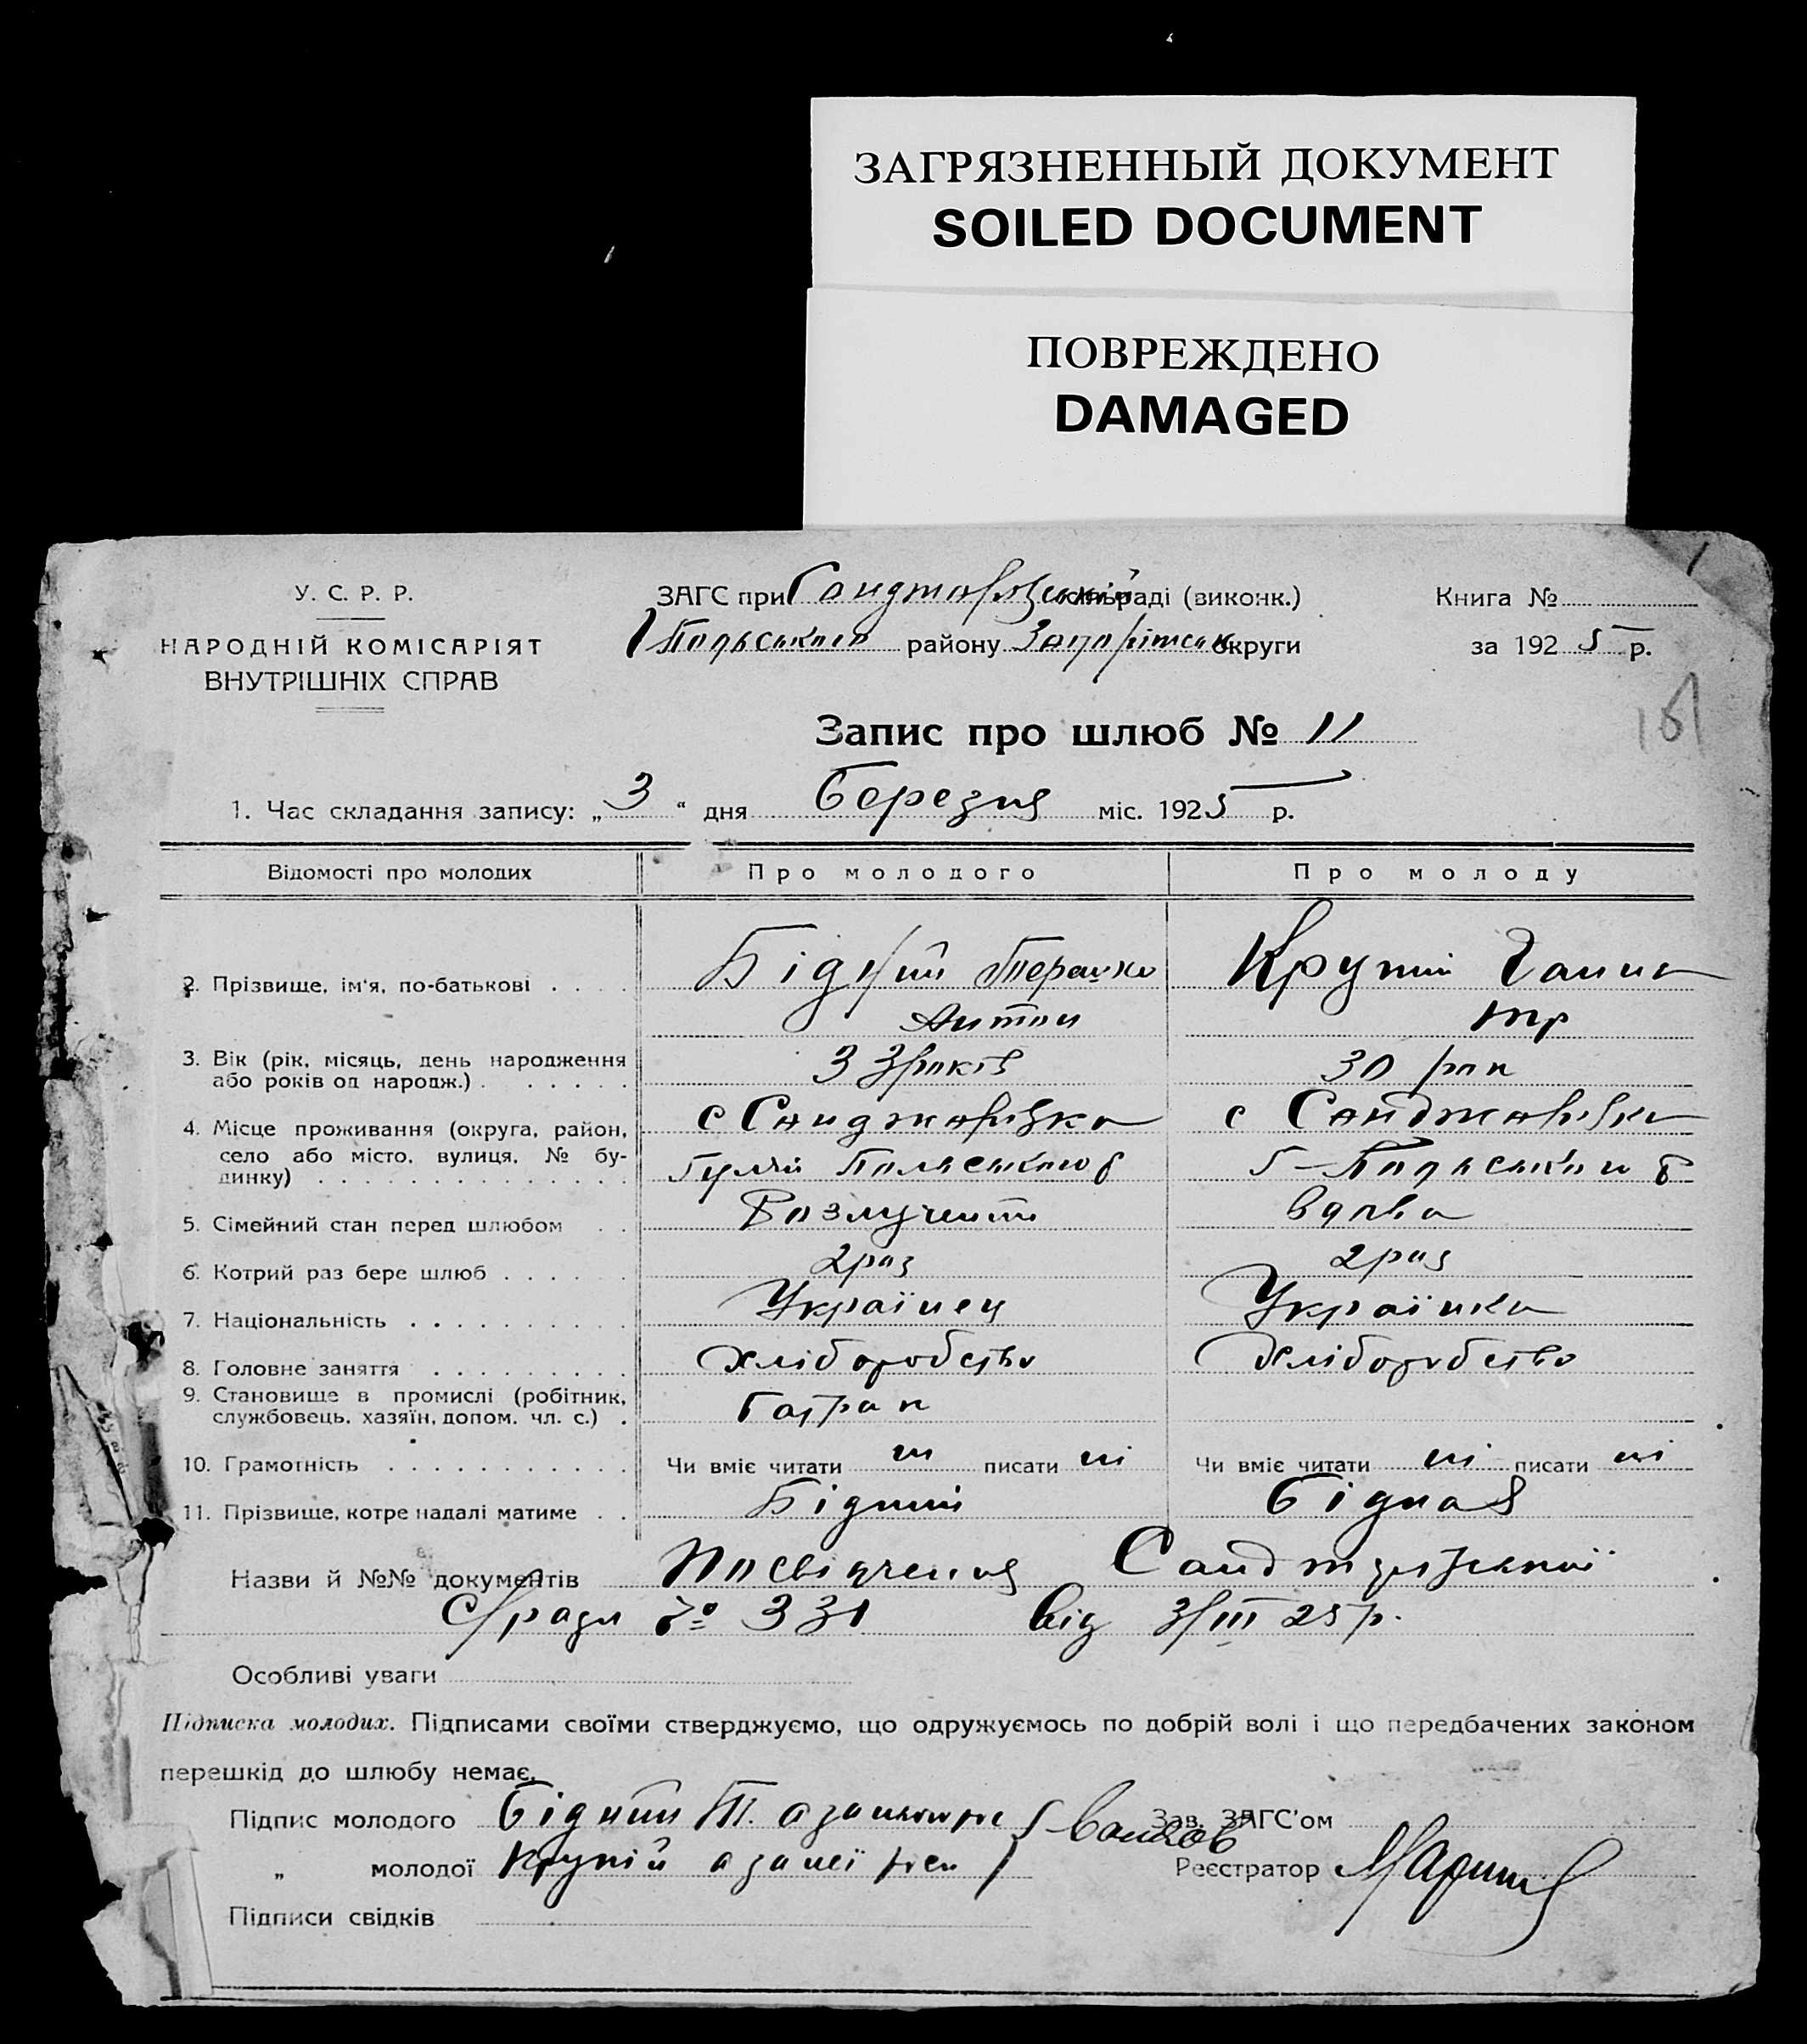 ЗАГРЯЗНЕННЫЙ ДОКУМЕНТ
SOILED DOCUMENT
ПОВРЕЖДЕНО
DAMAGED
У. С. Р. Р.
НАРОДНІЙ КОМІСАРІЯТ
ВНУТРІШНІХ СПРАВ
ЗАГС при сільраді (виконк.)
Польського району Запоріжськ округи
Книга №
за 1925 р.
Запис про шлюб № 11
1. Час складання запису: „3“ дня Березня міс. 1925 р.
Відомості про молодих Про молодого Про молоду
2. Прізвище, ім'я, по-батькові . . . . Бідний Терешко Крупій Ганна
Антон
3. Вік (рік, місяць, день народження
або років од народж.) . . . . . . 33 років 30 рок
4. Місце проживання (округа, район, с Санджарівка с Санджарівка
село або місто, вулиця, № бу-
динку) . . . . . . . . . . . . . . Гуляй Польського Г-Польського
5. Сімейний стан перед шлюбом . . Розлучений вдова
6. Котрий раз бере шлюб . . . . . . 2 раз 2 раз
7. Національність . . . . . . . . . . Українец Українка
8. Головне заняття . . . . . . . . . Хліборобство Хліборобство
9. Становище в промислі (робітник,
службовець, хазяїн, допом. чл. с.) .
10. Грамотність . . . . . . . . . . . Чи вміє читати ні писати ні Чи вміє читати ні писати ні
11. Прізвище, котре надалі матиме . . Бідний Бідная
Назви й №№ документів Посвідчення
с/ради № 331 від 3/III 25 р.
Особливі уваги
Підписка молодих. Підписами своїми стверджуємо, що одружуємось по добрій волі і що передбачених законом
перешкід до шлюбу немає.
Підпис молодого Бідний Т. а за
Зав. ЗАГС'ом
„ молодої Крупій а за неї
Реєстратор
Підписи свідків